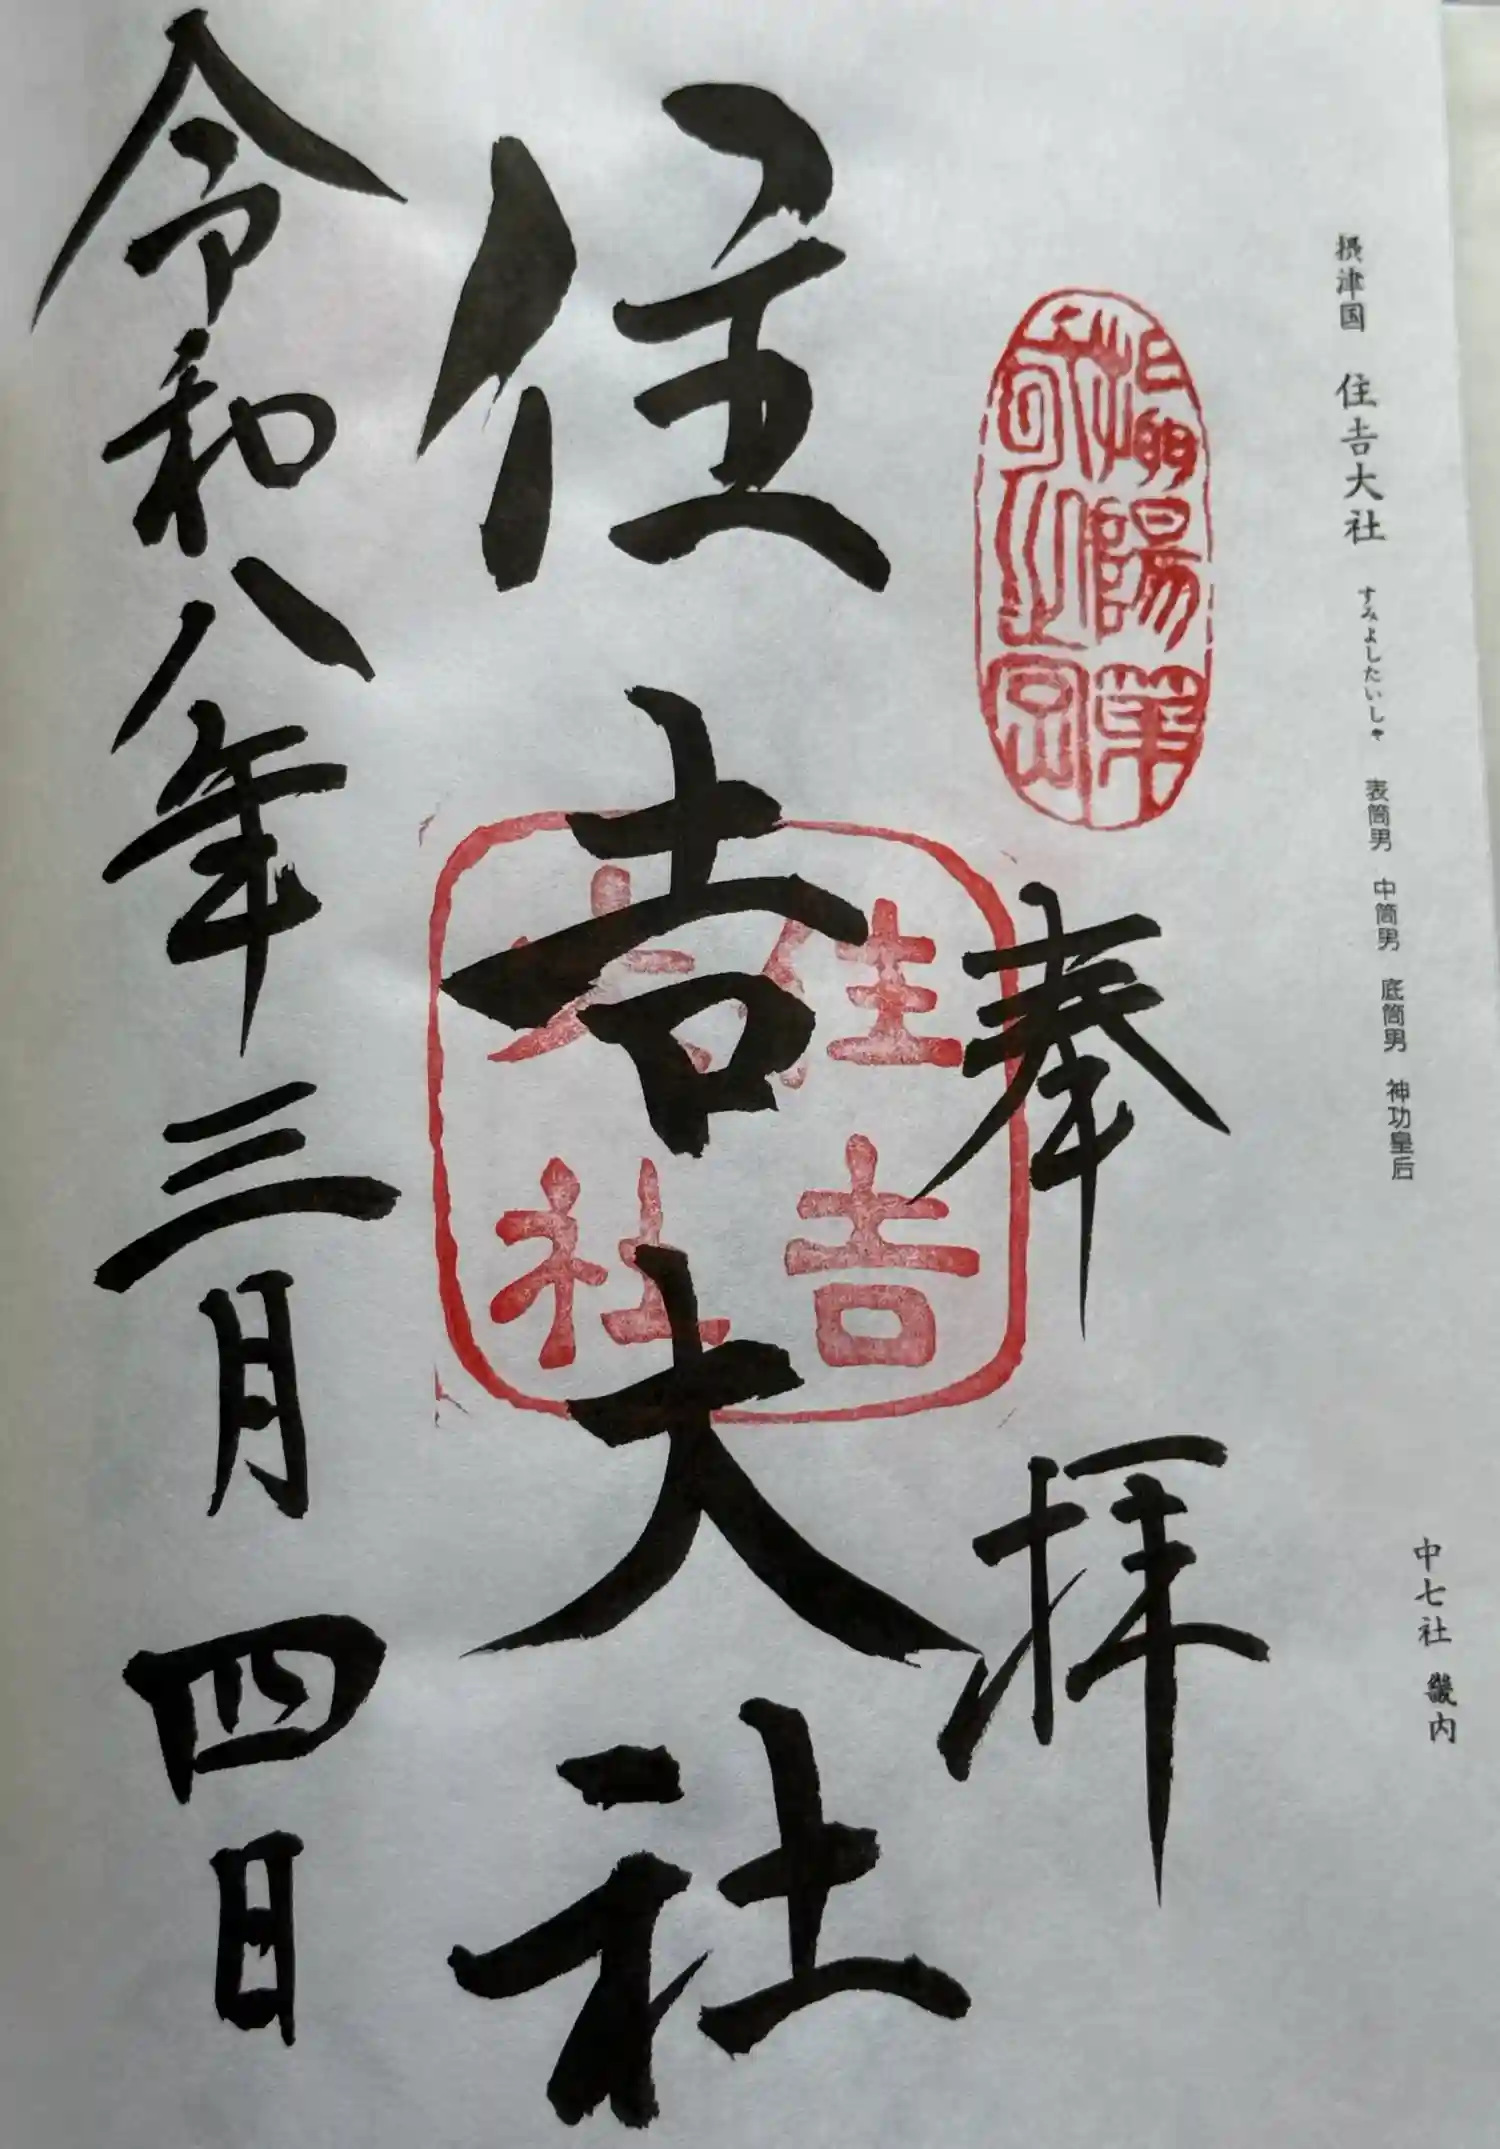 摂津国 住吉大社 すみよしたいしゃ 表筒男 中筒男 底筒男 神功皇后
中七社 畿内
奉拝
住吉大社
住吉
大社
令和八年三月四日